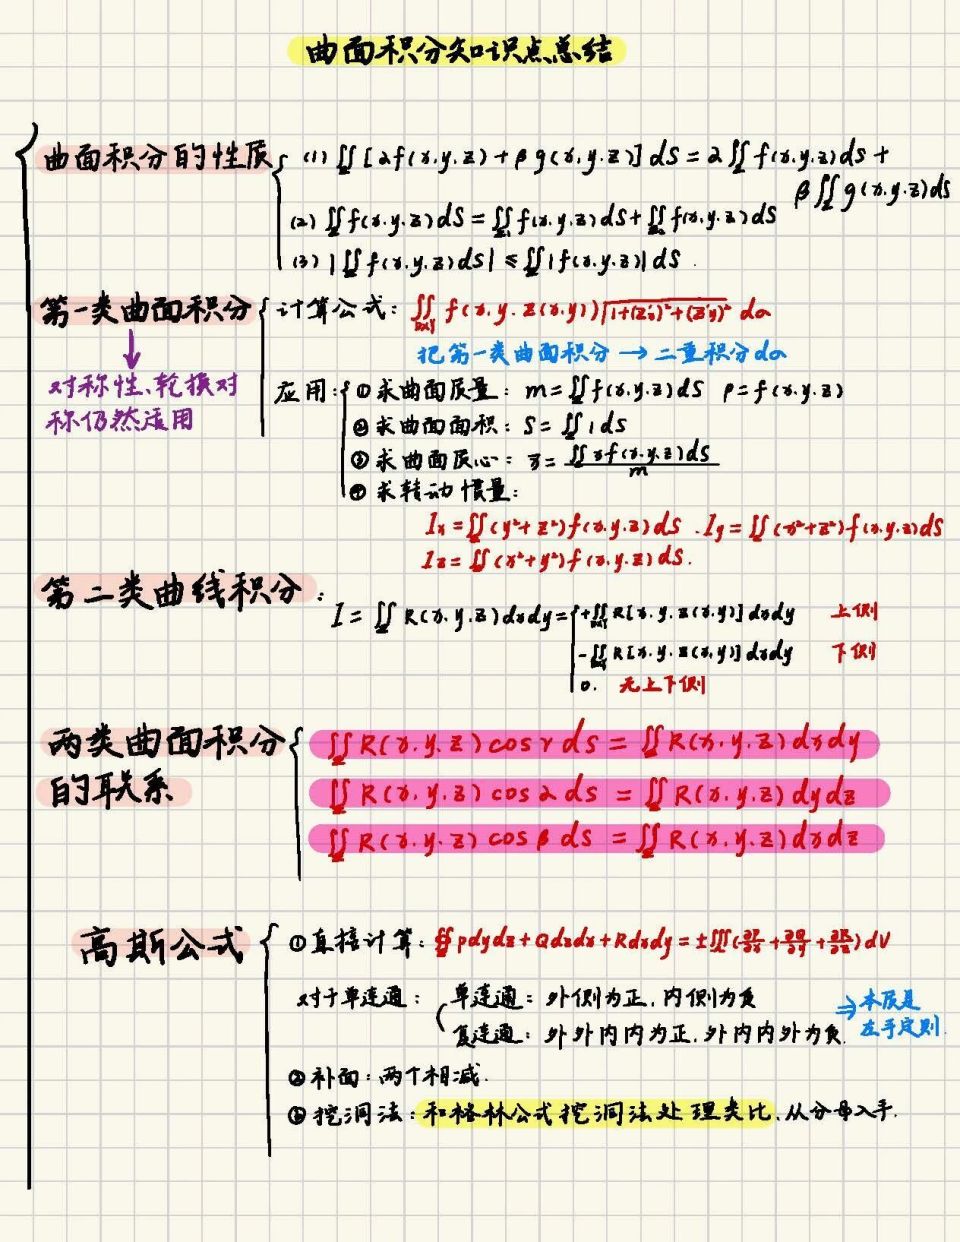 曲面积分知识点总结
曲面积分的性质
(1) ∬[αf(x.y.z)+βg(x.y.z)]dS=α∬f(x.y.z)ds+
β∬g(x.y.z)ds
(2) ∬f(x.y.z)dS=∬f(x.y.z)dS+∬f(x.y.z)dS
(3) |∬f(x.y.z)dS|≤∬|f(x.y.z)|dS.
第一类曲面积分
计算公式: ∬f(x.y.z(x.y))√1+(z'x)²+(z'y)² dσ
把第一类曲面积分→二重积分dσ
对称性、轮换对
称仍然适用
应用:
①求曲面质量: m=∬f(x.y.z)dS ρ=f(x.y.z)
②求曲面面积: S=∬1dS
③求曲面质心: x̄=∬xf(x.y.z)dS/m
④求转动惯量:
Ix=∬(y²+z²)f(x.y.z)dS . Iy=∬(x²+z²)f(x.y.z)dS
Iz=∬(x²+y²)f(x.y.z)dS.
第二类曲线积分:
I=∬R(x.y.z)dxdy=
+∬R[x.y.z(x.y)]dxdy 上侧
-∬R[x.y.z(x.y)]dxdy 下侧
0. 无上下侧
两类曲面积分
的联系
∬R(x.y.z)cosγds=∬R(x.y.z)dxdy
∬R(x.y.z)cosαds=∬R(x.y.z)dydz
∬R(x.y.z)cosβds=∬R(x.y.z)dxdz
高斯公式
①直接计算: ∯Pdydz+Qdzdx+Rdxdy=±∭(∂P/∂x+∂Q/∂y+∂R/∂z)dV
对于单连通: 单连通: 外侧为正.内侧为负
复连通: 外外内内为正.外内内外为负.
⇒本质是
左手定则.
②补面: 两个相减.
③挖洞法: 和格林公式挖洞法处理类比.从分母入手.